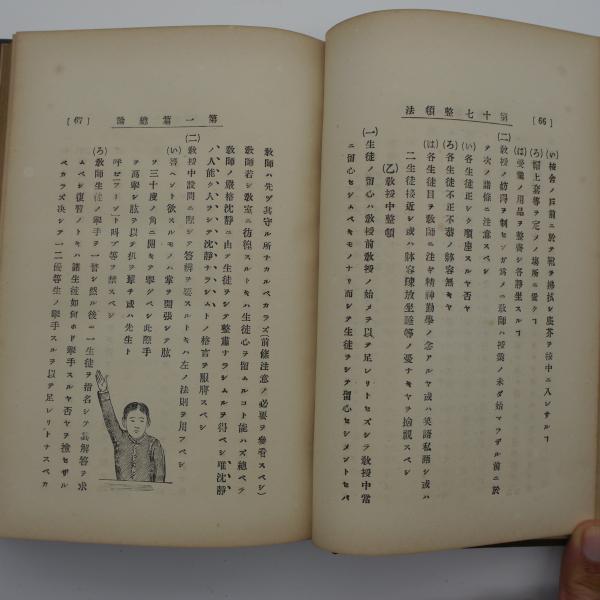 [66]
第十七整頓法
(い)校舎ノ戸前ニ於テ靴ヲ拂拭シ塵芥ヲ校中ニ入レサルヿ
(ろ)帽上套等ヲ定メノ場所ニ置クヿ
(は)受業ノ用品ヲ整齊シ各靜坐スルヿ
(二)敎授ノ妨碍ヲ制センガ爲メニ敎師ハ授業ノ未ダ始マラザル前ニ於
テ次ノ諸條ニ注意スベシ
(い)各生徒正シク順座スルヤ否ヤ
(ろ)各生徒不正不恭ノ躰容無キヤ
(は)各生徒目ヲ敎師ニ注ギ精神勤學ノ念アルヤ或ハ英語私語シ或ハ
二生徒接近シ或ハ躰容陳放坐睡等ノ憂ナキヤヲ檢視スベシ
(乙)敎授中整頓
(一)生徒ノ留心ハ敎授前敎授ノ始メヲ以テ足レリトセズシテ敎授中常
ニ留心セシムベキモノナリ而シテ生徒ヲシテ留心セシメントセバ
[67]
第一篇總論
敎師ハ先ヅ其守ル所ナカルベカラズ(前條注意ノ必要ヲ參看スベシ)
敎師若シ敎室ニ彷徨スルトキハ生徒心ヲ留ムルコト能ハズ總ベテ
敎師ノ嚴格沈靜ニ由テ生徒ヲシテ整肅ナラシムルヲ得ベシ唯沈靜
ノ人能ク人ヲシテ沈靜ナラシムトノ格言ヲ服膺スベシ
(二)敎授中設問ニ際シテ答辨ヲ要スルトキハ左ノ法則ヲ用フベシ
(い)答ヘント欲スルモノハ掌ヲ開張シテ肱
ヲ三十度ノ角ニ開キテ擧グベシ此際手
ヲ高擧シ肱ヲ以テ机ヲ擊チ或ハ先生ト
呼ビフリント叫ブ等ヲ禁スベシ
(ろ)敎師生徒ノ擧手ヲ一瞥シ然ル後ニ一生徒ヲ指名シテ其解答ヲ求
ムベシ復習ノトキハ諸生徒如何ホド擧手スルヤ否ヤヲ撿セザル
ベカラズ决シテ一二優等生ノ擧手スルヲ以テ足レリトナスベカ